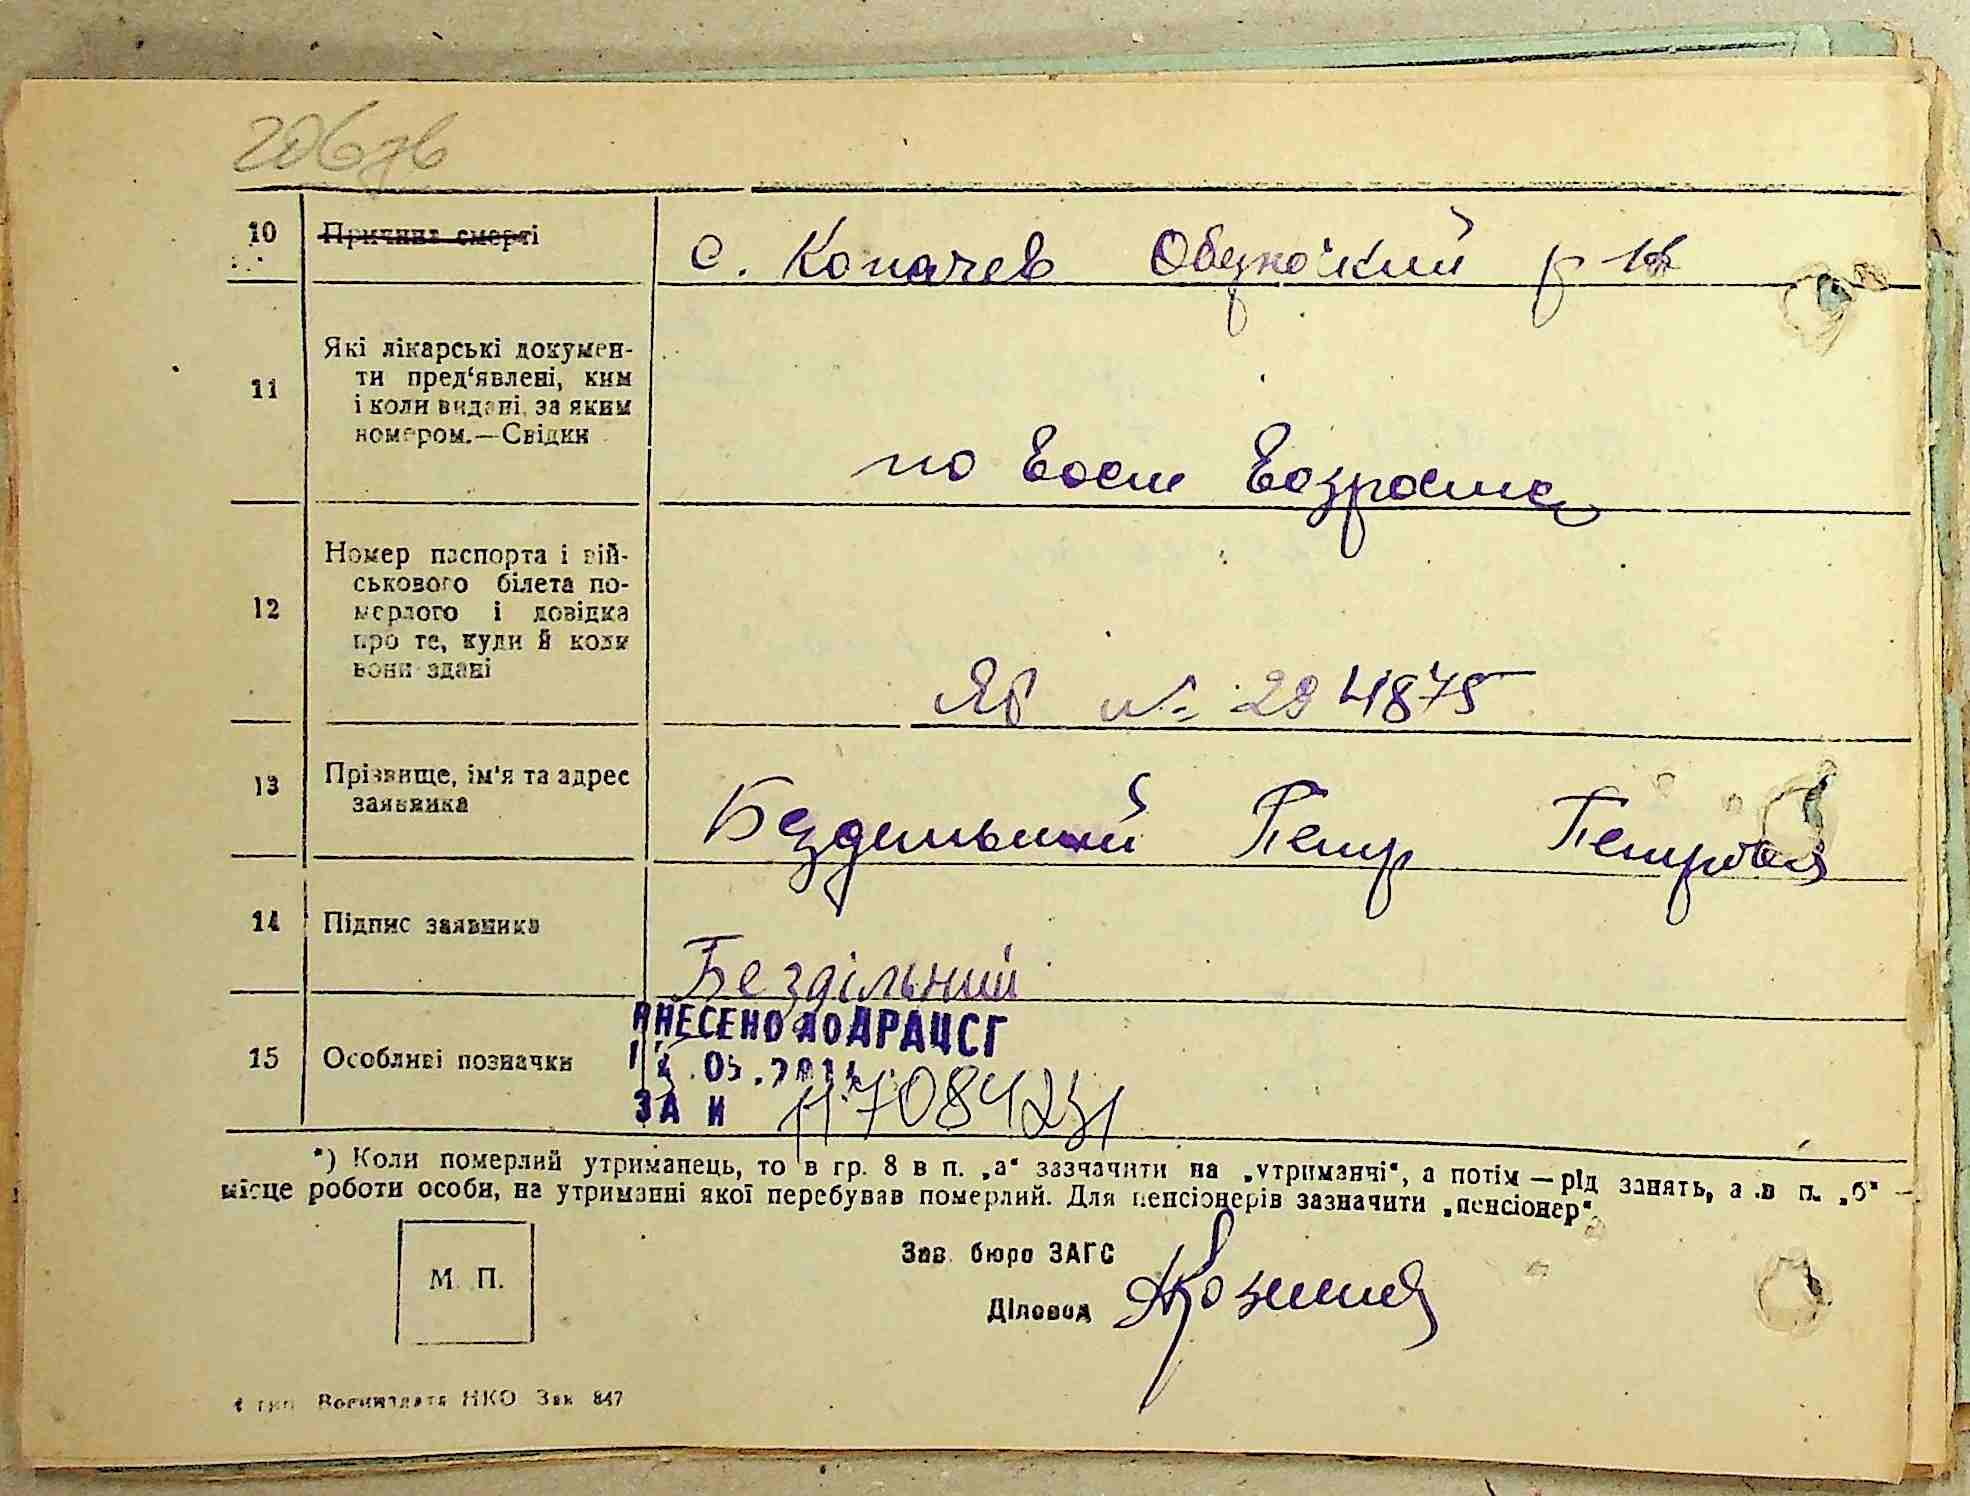 206зв
10 Причина смерті с. Копачев Обухоський р-н
11 Які лікарські докумен-
ти пред'явлені, ким
і коли видані, за яким
номером.—Свідки
по воен возрасту
12 Номер паспорта і вій-
ськового білета по-
мерлого і довідка
про те, куди й коли
вони здані
№ 294875
13 Прізвище, ім'я та адрес
заявника
Бездельный Петр Петрович
14 Підпис заявника
Бездільний
15 Особливі позначки
ВНЕСЕНО ДО ДРАЦСГ
.05.201
ЗА №
*) Коли померлий утриманець, то в гр. 8 в п. „а" зазначити на „утриманчі", а потім — рід занять, а в п. „б" —
місце роботи особи, на утриманні якої перебував померлий. Для пенсіонерів зазначити „пенсіонер".
Зав. бюро ЗАГС
М. П.
Діловод
4 тип. Воениздата НКО Зак 847